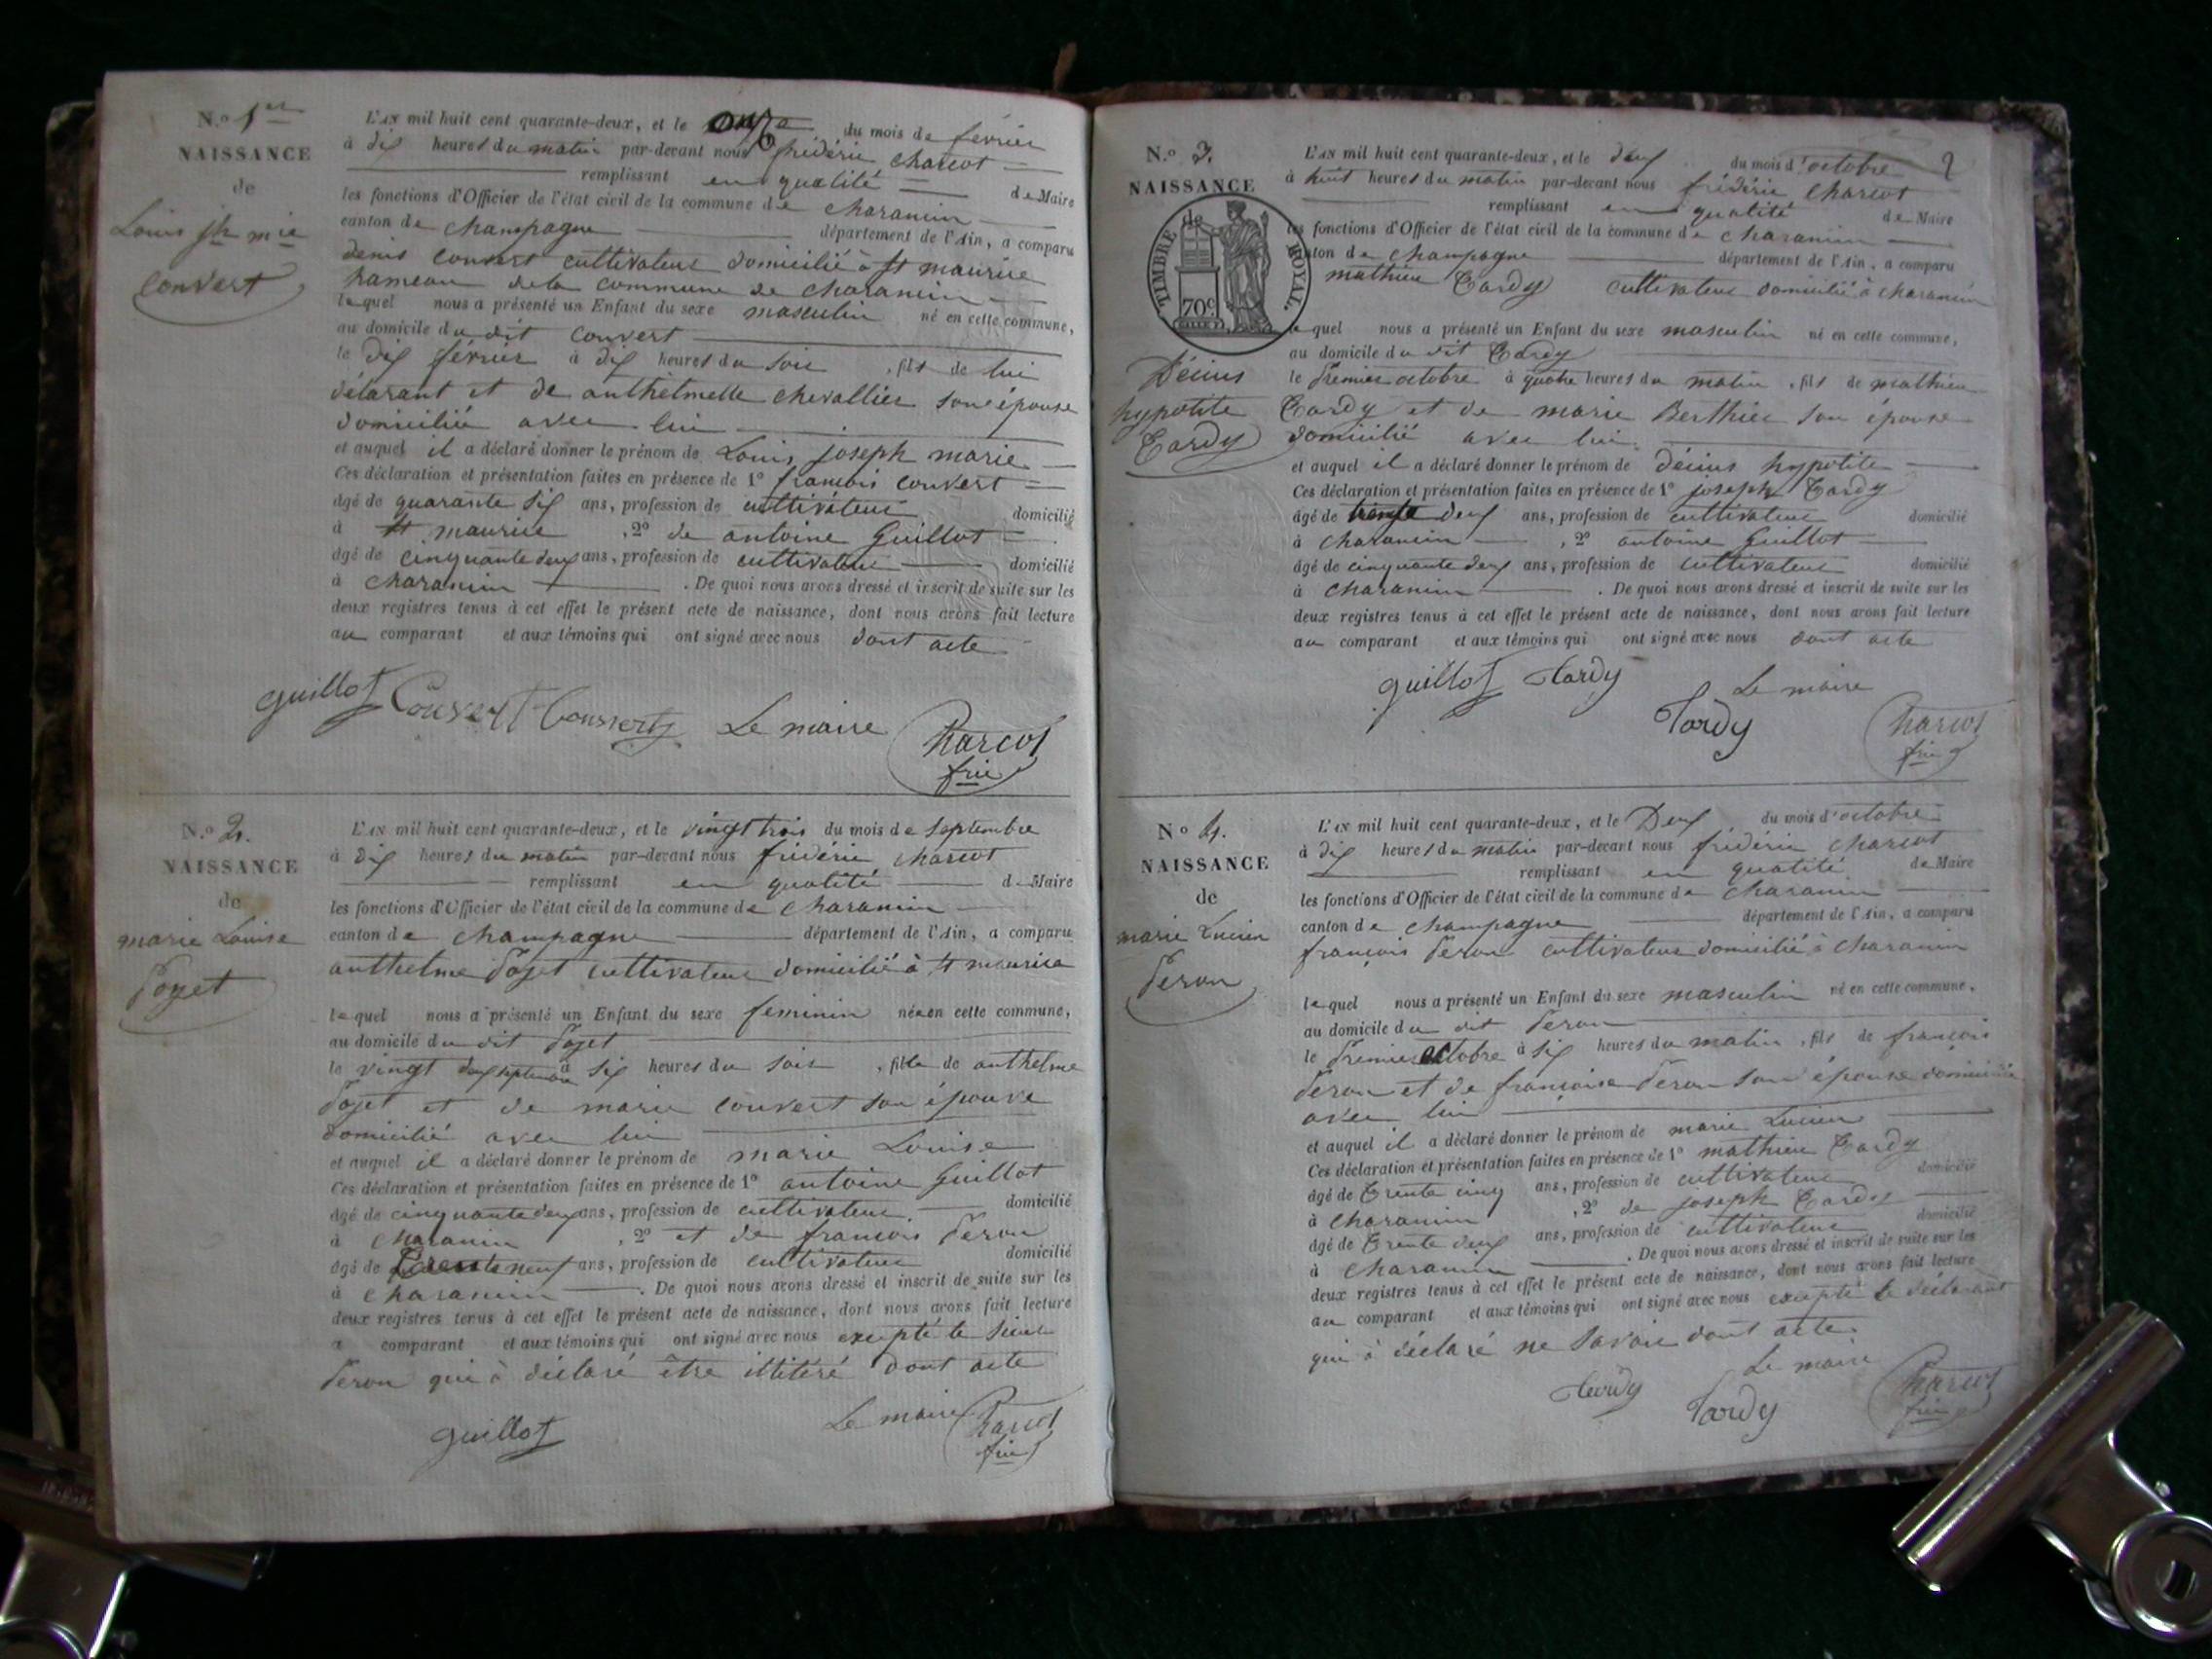 N.o 1er
NAISSANCE
de
Louis jh mie
convert
L'AN mil huit cent quarante-deux, et le onze du mois de février
à dix heures du matin par-devant nous frédéric charcot
remplissant en qualité de Maire
les fonctions d'Officier de l'état civil de la commune de charancin
canton de champagne département de l'Ain, a comparu
denis convert cultivateur domicilié à st maurice
hameau de la commune de charancin
lequel nous a présenté un Enfant du sexe masculin né en cette commune,
au domicile du dit convert
le dix février à dix heures du soir, fils de lui
déclarant et de anthelmette chevallier son épouse
domiciliée avec lui
et auquel il a déclaré donner le prénom de Louis joseph marie
Ces déclaration et présentation faites en présence de 1o francois convert
âgé de quarante six ans, profession de cultivateur domicilié
à st maurice, 2o de antoine Guillot
âgé de cinquante deux ans, profession de cultivateur domicilié
à charancin. De quoi nous avons dressé et inscrit de suite sur les
deux registres tenus à cet effet le présent acte de naissance, dont nous avons fait lecture
au comparant et aux témoins qui ont signé avec nous dont acte
guillot Convert Convert Le maire Charcot
fric
N.o 2.
NAISSANCE
de
marie Louise
Poget
L'AN mil huit cent quarante-deux, et le vingt trois du mois de septembre
à dix heures du matin par-devant nous frédéric charcot
remplissant en qualité de Maire
les fonctions d'Officier de l'état civil de la commune de charancin
canton de champagne département de l'Ain, a comparu
anthelme Poget cultivateur domicilié à st maurice
lequel nous a présenté un Enfant du sexe feminin née en cette commune,
au domicile du dit Poget
le vingt deux septembre à six heures du soir, fille de anthelme
Poget et de marie convert son épouse
domicilié avec lui
et auquel il a déclaré donner le prénom de marie Louise
Ces déclaration et présentation faites en présence de 1o antoine Guillot
âgé de cinquante deux ans, profession de cultivateur domicilié
à charancin, 2o et de francois Peron
âgé de trente neuf ans, profession de cultivateur domicilié
à charancin. De quoi nous avons dressé et inscrit de suite sur les
deux registres tenus à cet effet le présent acte de naissance, dont nous avons fait lecture
a comparant et aux témoins qui ont signé avec nous excepté le sieur
Peron qui à déclaré être illitéré dont acte
guillot Le maire Charcot
fric
2
N.o 3.
NAISSANCE
de
TIMBRE ROYAL.
70c.
Décius
hypolite
Tardy
L'AN mil huit cent quarante-deux, et le deux du mois d'octobre
à huit heures du matin par-devant nous frédéric charcot
remplissant en qualité de Maire
les fonctions d'Officier de l'état civil de la commune de charancin
canton de champagne département de l'Ain, a comparu
mathieu Tardy cultivateur domicilié à charancin
lequel nous a présenté un Enfant du sexe masculin né en cette commune,
au domicile du dit Tardy
le Premier octobre à quatre heures du matin, fils de mathieu
Tardy et de marie Berthier son épouse
domicilié avec lui
et auquel il a déclaré donner le prénom de décius hypolite
Ces déclaration et présentation faites en présence de 1o joseph Tardy
âgé de trente deux ans, profession de cultivateur domicilié
à charancin, 2o antoine Guillot
âgé de cinquante deux ans, profession de cultivateur domicilié
à charancin. De quoi nous avons dressé et inscrit de suite sur les
deux registres tenus à cet effet le présent acte de naissance, dont nous avons fait lecture
au comparant et aux témoins qui ont signé avec nous dont acte
guillot Tardy Le maire
Tardy Charcot
fric
No 4.
NAISSANCE
de
marie Lucien
Peron
L'AN mil huit cent quarante-deux, et le Deux du mois d'octobre
à dix heures du matin par-devant nous frédéric charcot
remplissant en qualité de Maire
les fonctions d'Officier de l'état civil de la commune de charancin
canton de champagne département de l'Ain, a comparu
françois Peron cultivateur domicilié à charancin
lequel nous a présenté un Enfant du sexe masculin né en cette commune,
au domicile du dit Peron
le Premier octobre à six heures du matin, fils de françois
Peron et de françoise Peron son épouse domicilié
avec lui
et auquel il a déclaré donner le prénom de marie Lucien
Ces déclaration et présentation faites en présence de 1o mathieu Tardy
âgé de Trente cinq ans, profession de cultivateur domicilié
à charancin, 2o de joseph Tardy
âgé de Trente deux ans, profession de cultivateur domicilié
à charancin. De quoi nous avons dressé et inscrit de suite sur les
deux registres tenus à cet effet le présent acte de naissance, dont nous avons fait lecture
au comparant et aux témoins qui ont signé avec nous excepté le déclarant
qui à déclaré ne savoir dont acte.
Le maire
Tardy Tardy Charcot
fric